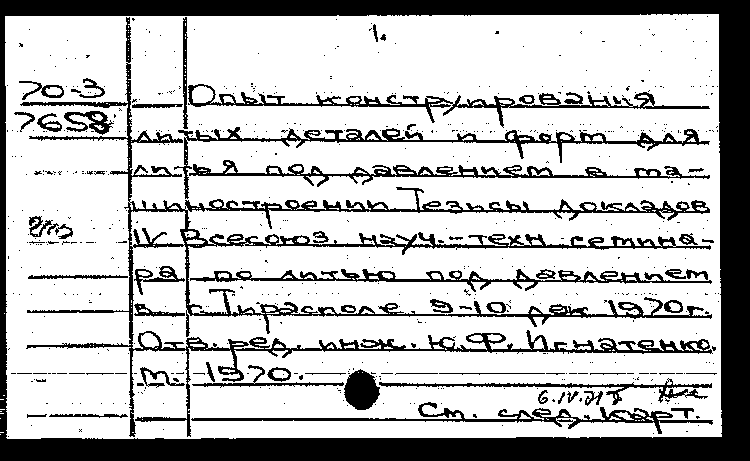 1.
70-3
7658
Опыт конструирования
литых деталей и форм для
литья под давлением в ма-
шиностроении Тезисы докладов
IV Всесоюз. науч.-техн семина-
ра по литью под давлением
в г. Тирасполе. 9-10 дек 1970г.
Отв. ред. инж. Ю.Ф. Игнатенко.
М. 1970.
6.IV.71
См. след. карт.